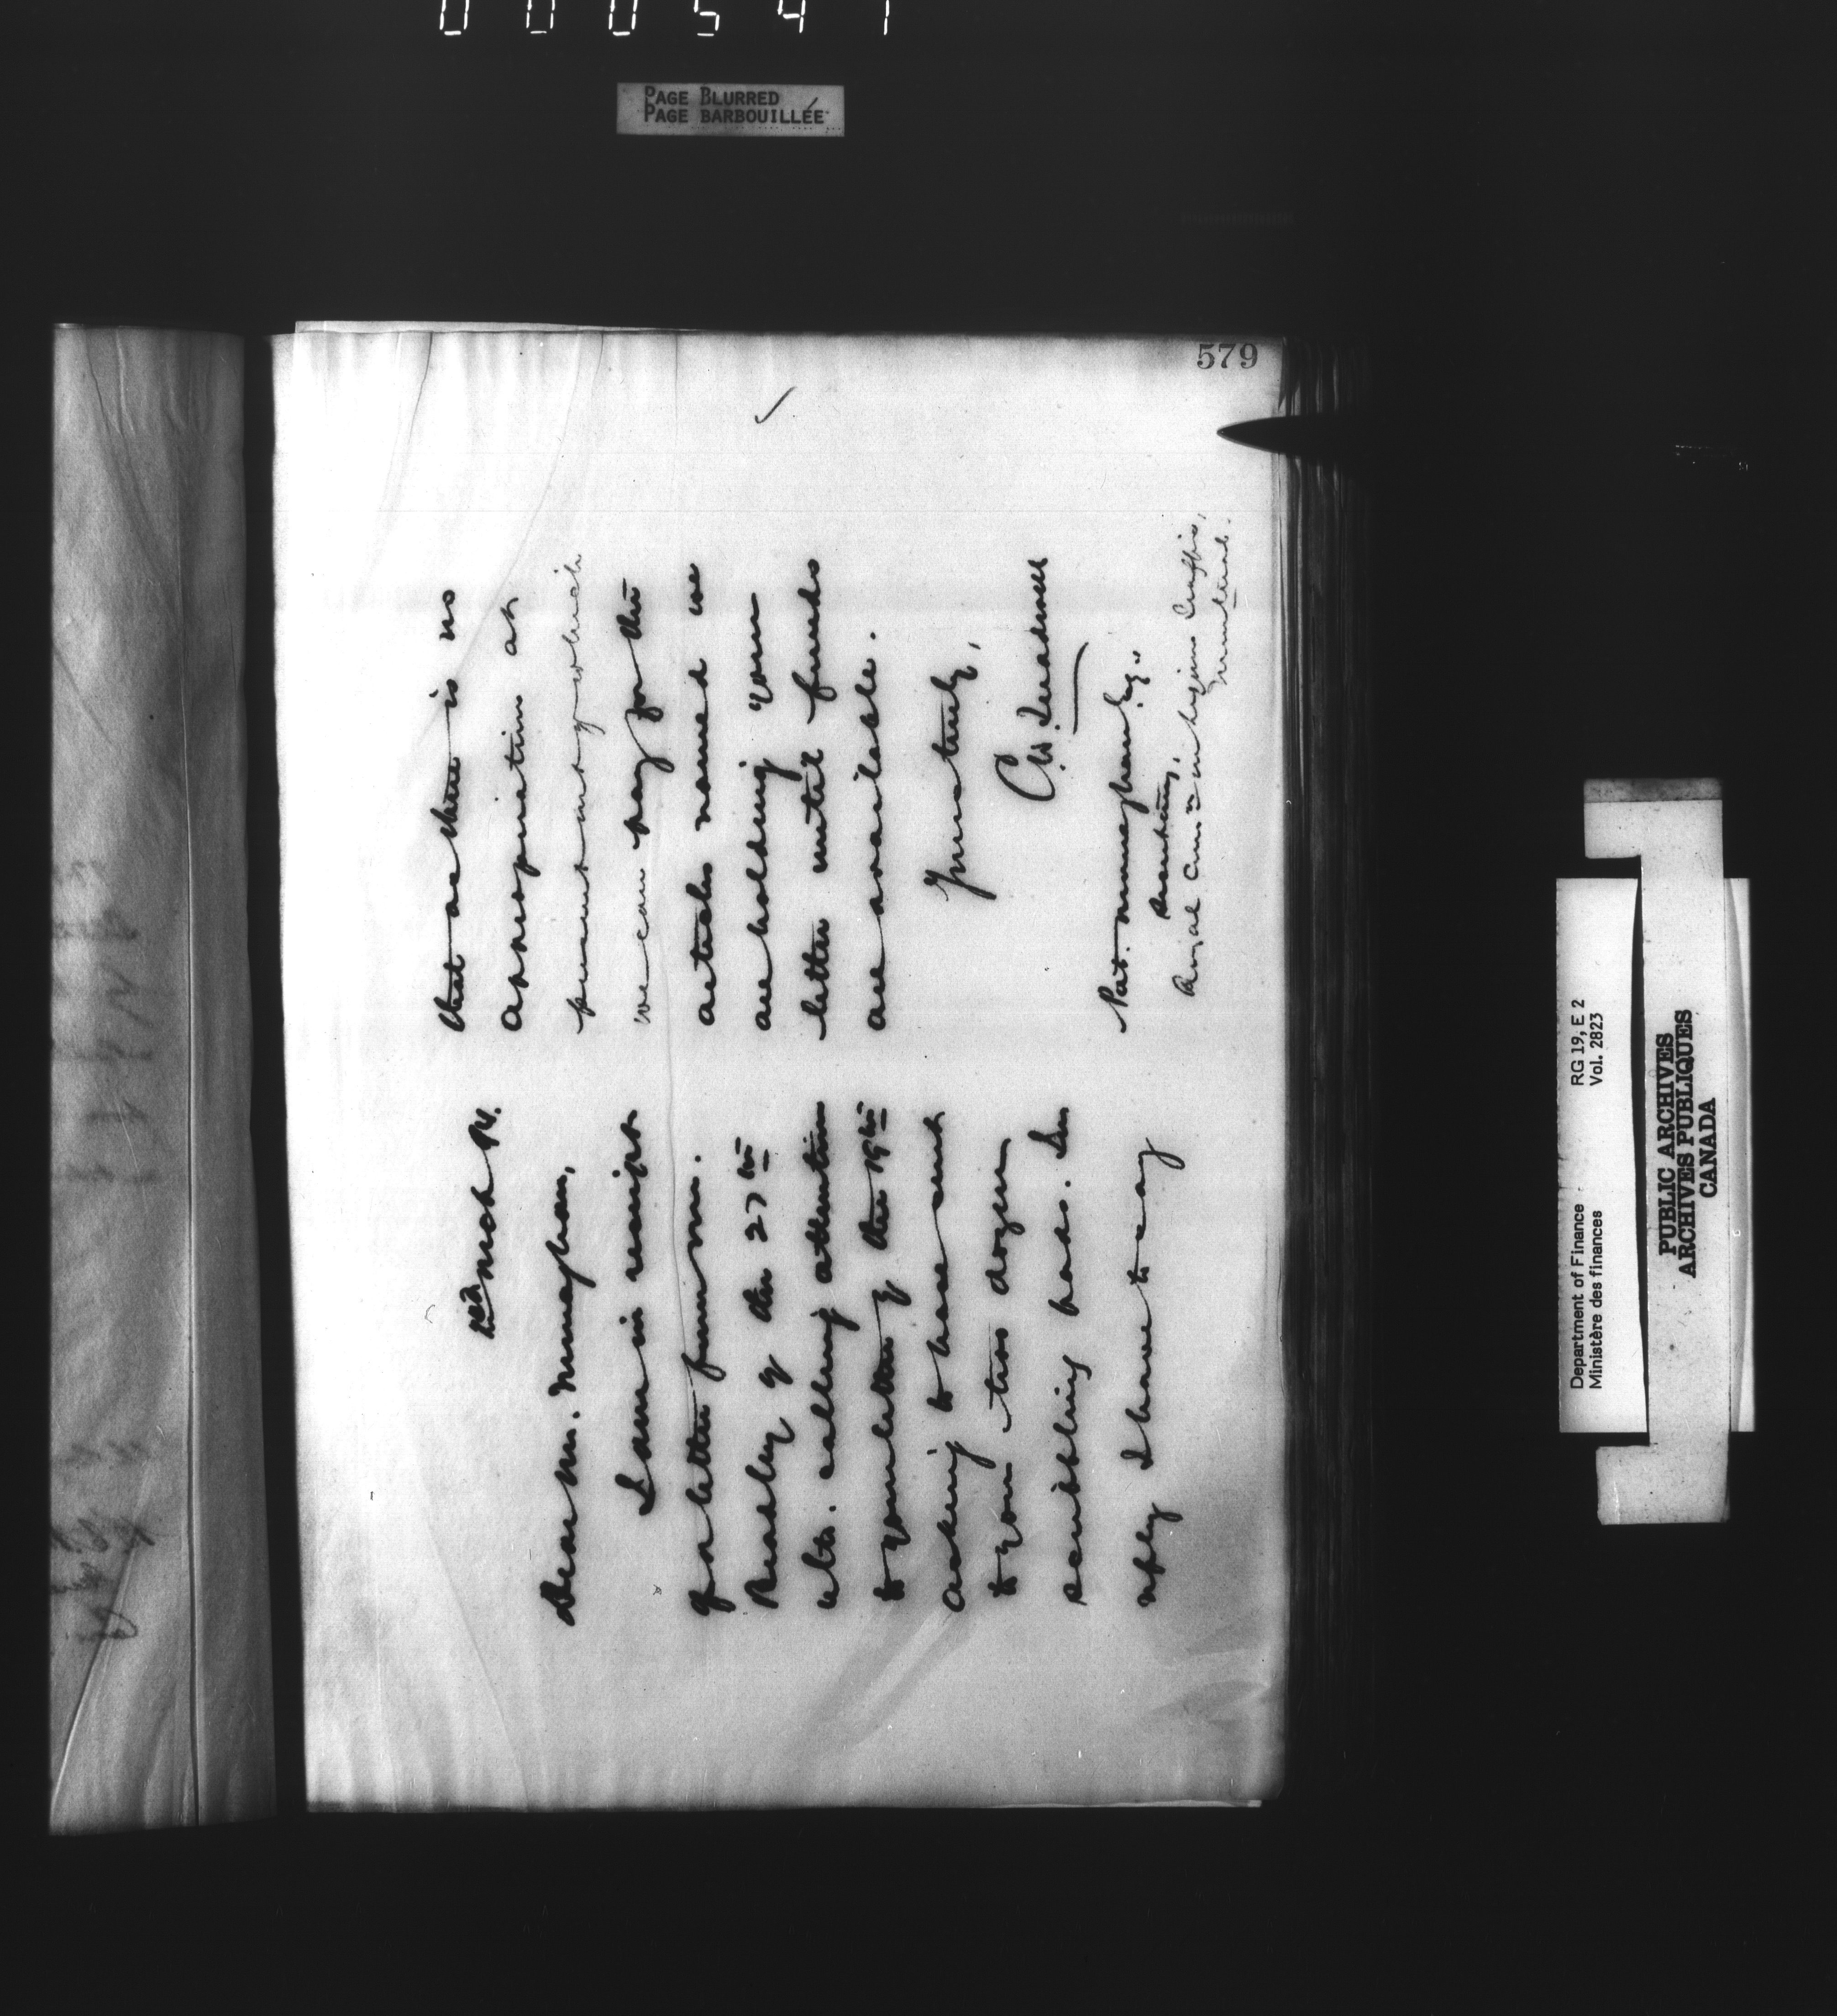 000541
PAGE BLURRED
PAGE BARBOUILLÉE
579
2nd March 94.
Dear Mr. Monaghan,
I am in receipt
of a letter from Mr.
Beasley of the 27th
ulto. calling attention
to your letter of the 19th
asking to have sent
to you two dozen
scribbling pads. In
reply I have to say
that as there is no
appropriation at
present out of which
we can pay for the
articles named we
are holding your
letter until funds
are available.
Yours truly,
C.W. Treadwell
Pat. Monaghan, Esq.,
Secretary,
Royal Comn on Liquor Traffic,
Montreal.
Department of Finance RG 19, E 2
Ministère des finances Vol. 2823
PUBLIC ARCHIVES
ARCHIVES PUBLIQUES
CANADA